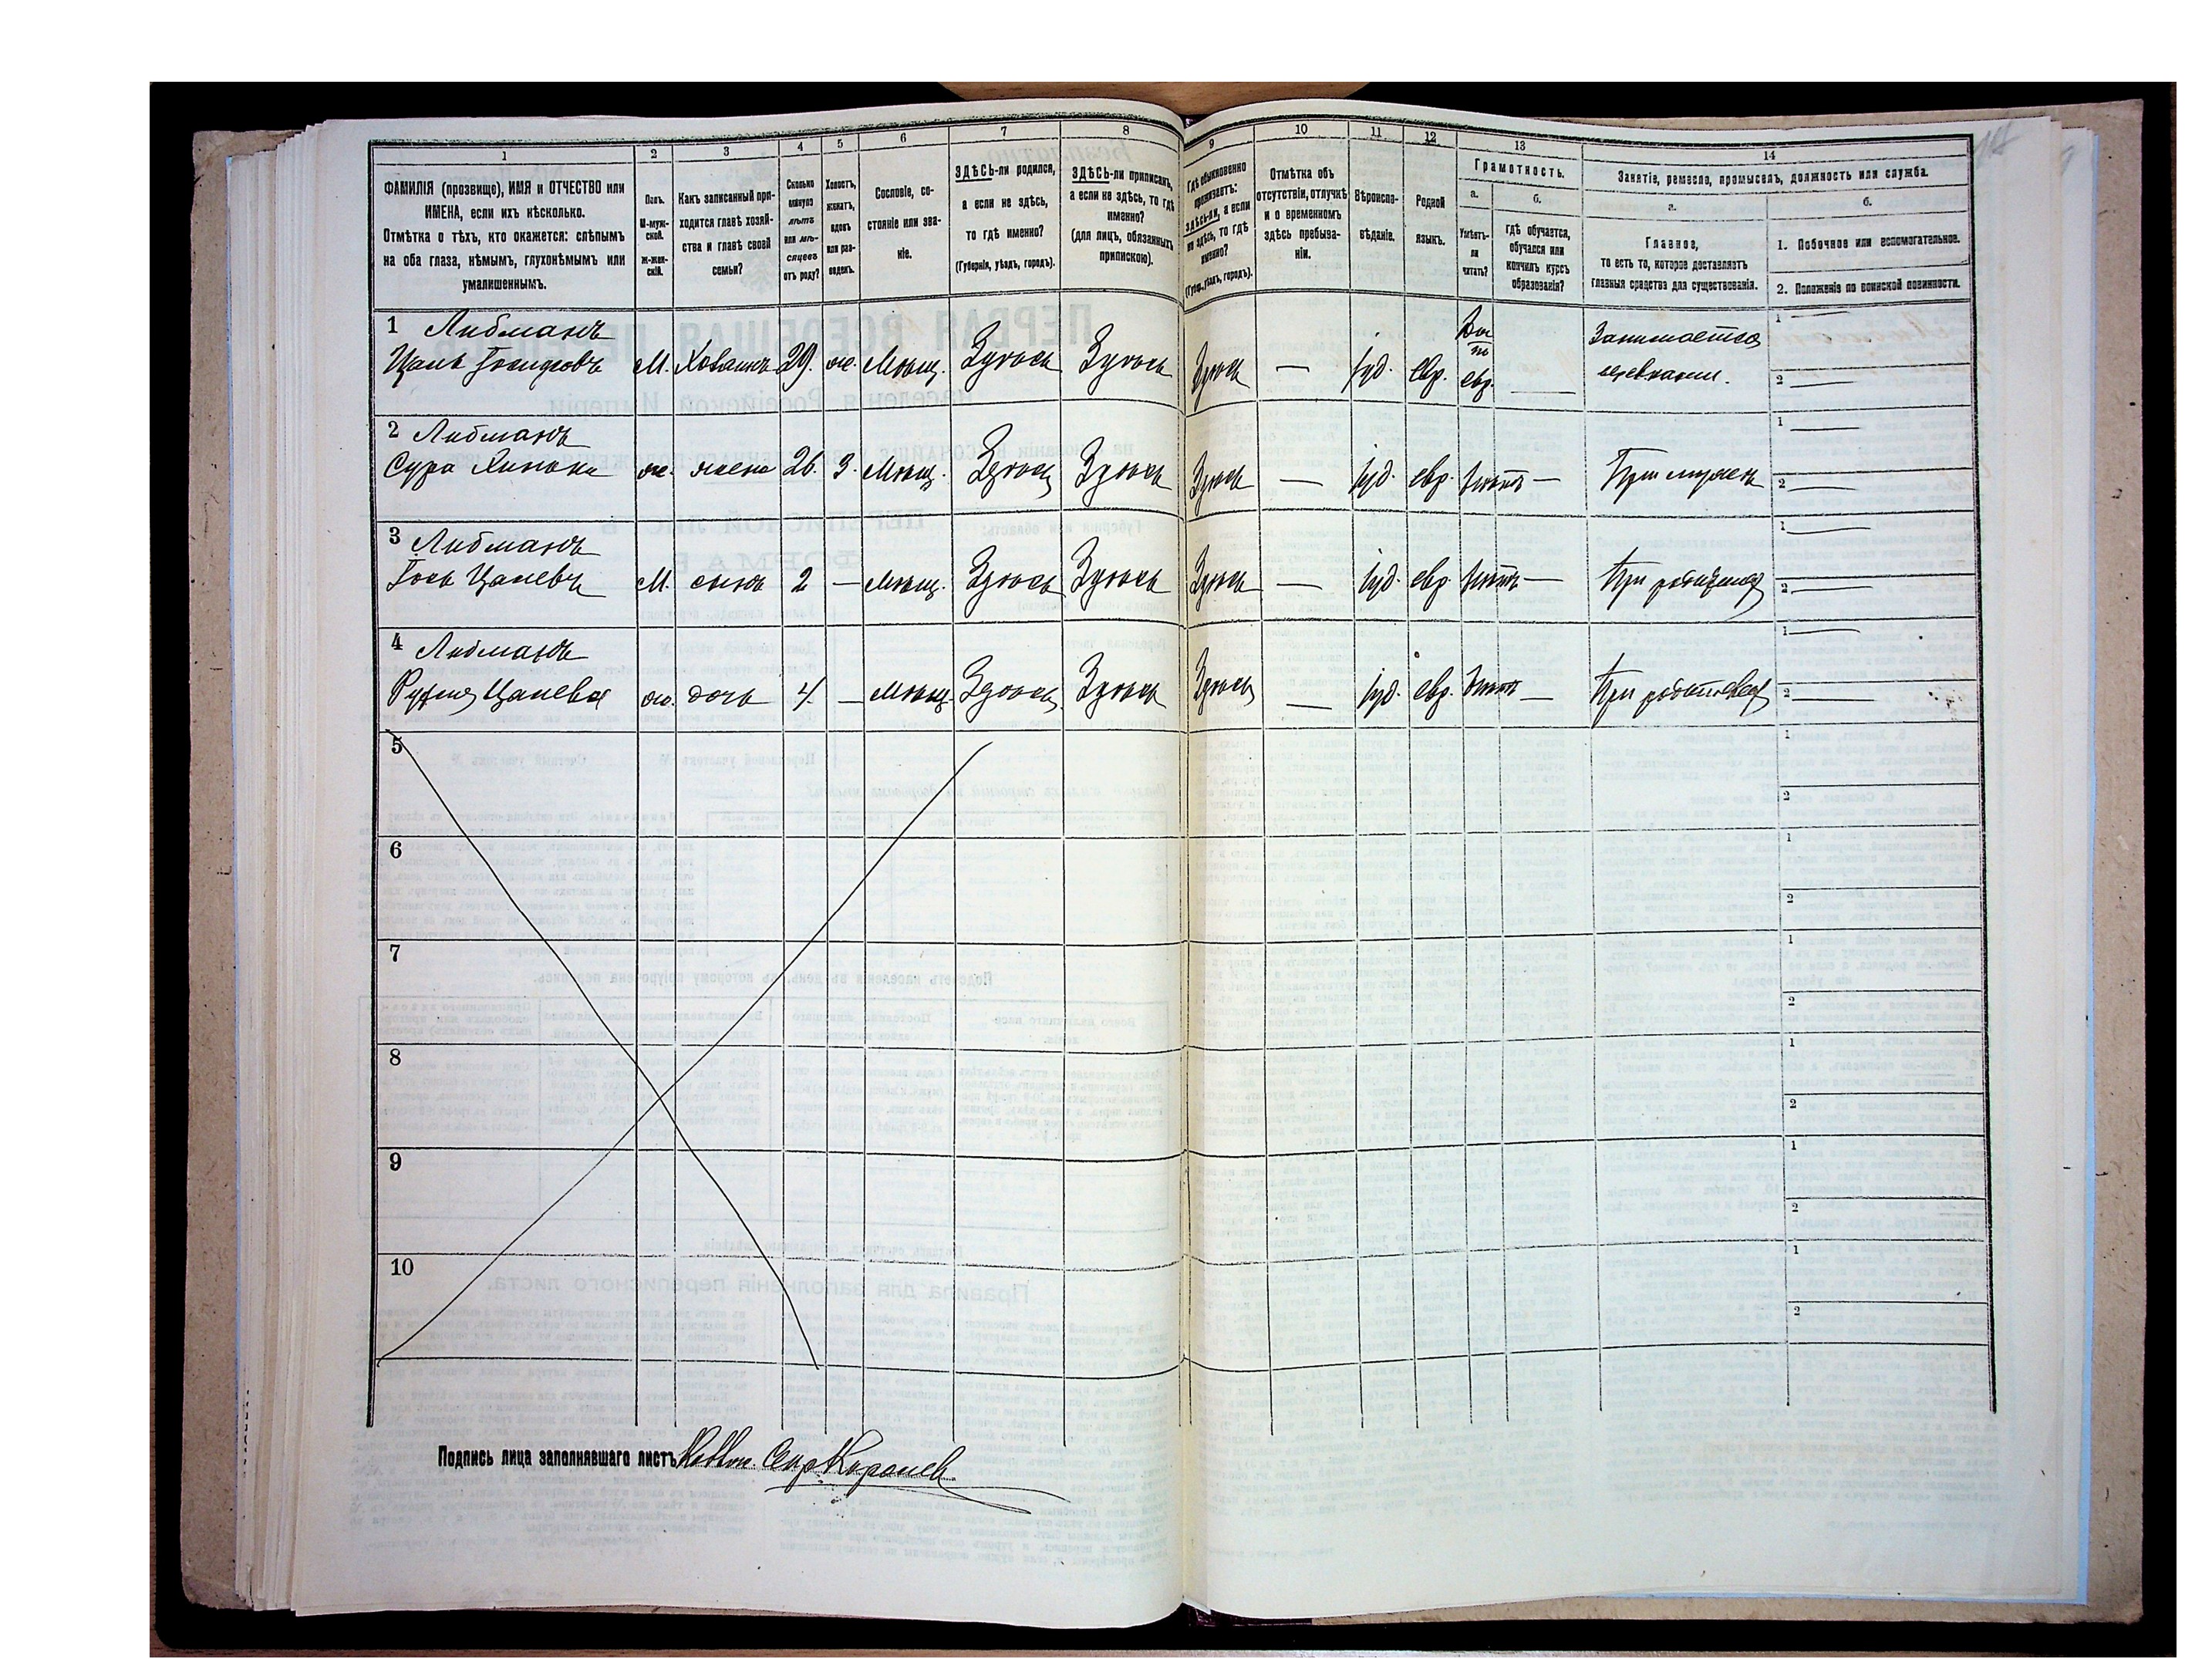 1 2 3 4 5 6 7 8 9 10 11 12 13 14
ФАМИЛІЯ (прозвище), ИМЯ и ОТЧЕСТВО или
ИМЕНА, если ихъ нѣсколько.
Отмѣтка о тѣхъ, кто окажется: слѣпымъ
на оба глаза, нѣмымъ, глухонѣмымъ или
умалишеннымъ.
Полъ.
М-муж-
ской.
Ж-жен-
скій.
Какъ записанный при-
ходится главѣ хозяй-
ства и главѣ своей
семьи?
Сколько
минуло
лѣтъ
или мѣ-
сяцевъ
отъ роду?
Холостъ,
женатъ,
вдовъ
или раз-
веденъ.
Сословіе, со-
стояніе или зва-
ніе.
ЗДѢСЬ-ли родился,
а если не здѣсь,
то гдѣ именно?
(Губернія, уѣздъ, городъ).
ЗДѢСЬ-ли приписанъ,
а если не здѣсь, то гдѣ
именно?
(для лицъ, обязанныхъ
припискою).
Гдѣ обыкновенно
проживаетъ:
здѣсь-ли, а если
не здѣсь, то гдѣ
именно?
(Губерн., уѣздъ, городъ).
Отмѣтка объ
отсутствіи, отлучкѣ
и о временномъ
здѣсь пребыва-
ніи.
Вѣроиспо-
вѣданіе.
Родной
языкъ.
Грамотность.
а. б.
Умѣетъ-
ли
читать?
гдѣ обучается,
обучался или
кончилъ курсъ
образованія?
Занятіе, ремесло, промыселъ, должность или служба.
а. б.
Главное,
то есть то, которое доставляетъ
главныя средства для существованія.
1. Побочное или вспомогательное.
2. Положеніе по воинской повинности.
1 Либманъ
М. 29. ж. Мѣщ. Здѣсь Здѣсь Здѣсь — іуд. евр. евр. — Занимается
1 —
2 —
2 Либманъ
Сура ж. жена 26. З. Мѣщ. Здѣсь Здѣсь Здѣсь — іуд. евр. нѣтъ — При мужѣ
1 —
2 —
3 Либманъ
М. сынъ 2 — Мѣщ. Здѣсь Здѣсь Здѣсь — іуд. евр. нѣтъ — При
1 —
2 —
4 Либманъ
ж. дочь 4. — Мѣщ. Здѣсь Здѣсь Здѣсь — іуд. евр. нѣтъ — При
1 —
2 —
5 1
2
6 1
2
7 1
2
8 1
2
9 1
2
10 1
2
Подпись лица заполнявшаго листъ